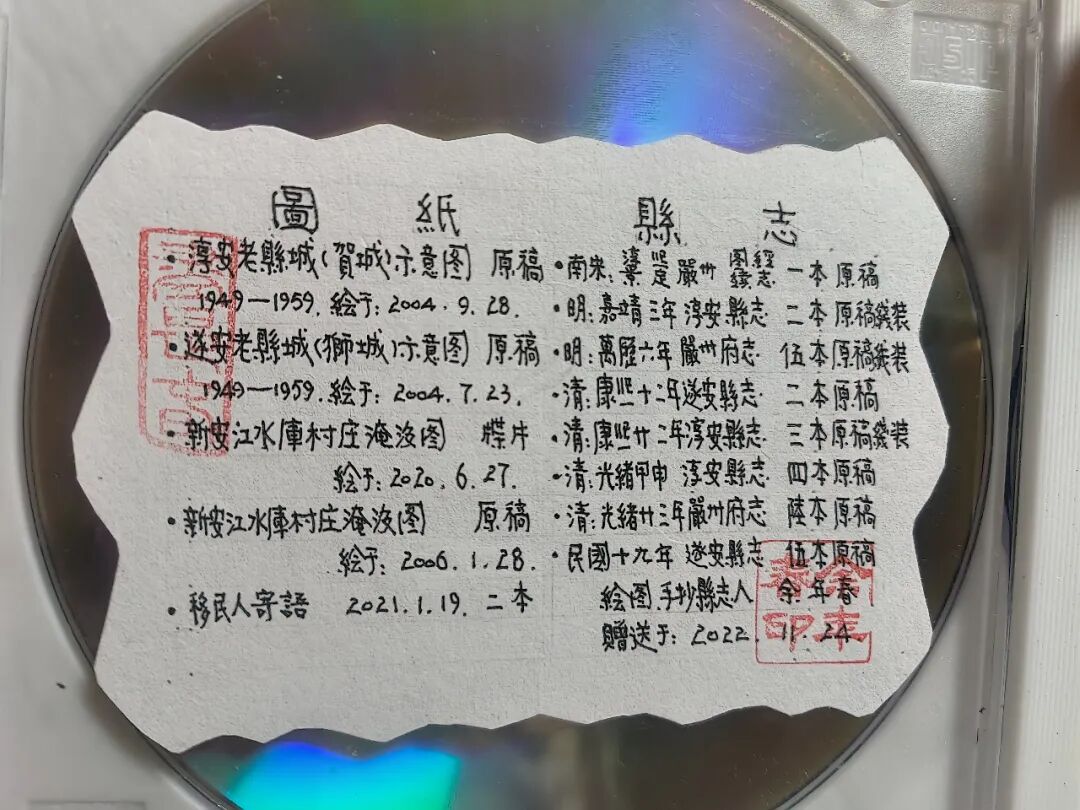 圖 紙
· 淳安老縣城(賀城)示意图 原稿
1949—1959. 绘于: 2004.9.28.
· 遂安老縣城(獅城)示意图 原稿
1949—1959. 绘于: 2004.7.23.
· 新安江水库村庄淹没图 牒片
绘于: 2020.6.27.
· 新安江水库村庄淹没图 原稿
绘于: 2006.1.28.
· 移民人寄語 2021.1.19. 二本
縣 志
· 南宋: 嚴州 图經 續志 一本原稿
· 明: 嘉靖三年 淳安縣志 二本 原稿
· 明: 萬歷六年 嚴州府志 伍本原稿
· 清: 康熙十二年遂安縣志 二本 原稿
· 清: 康熙廿二年淳安縣志 三本原稿
· 清: 光緒甲申 淳安縣志 四本原稿
· 清: 光緒廿三年嚴州府志 陸本原稿
· 民國十九年 遂安縣志 伍本原稿
绘图 手抄縣志人 余年春
贈送于: 2022.11.24
余年春印